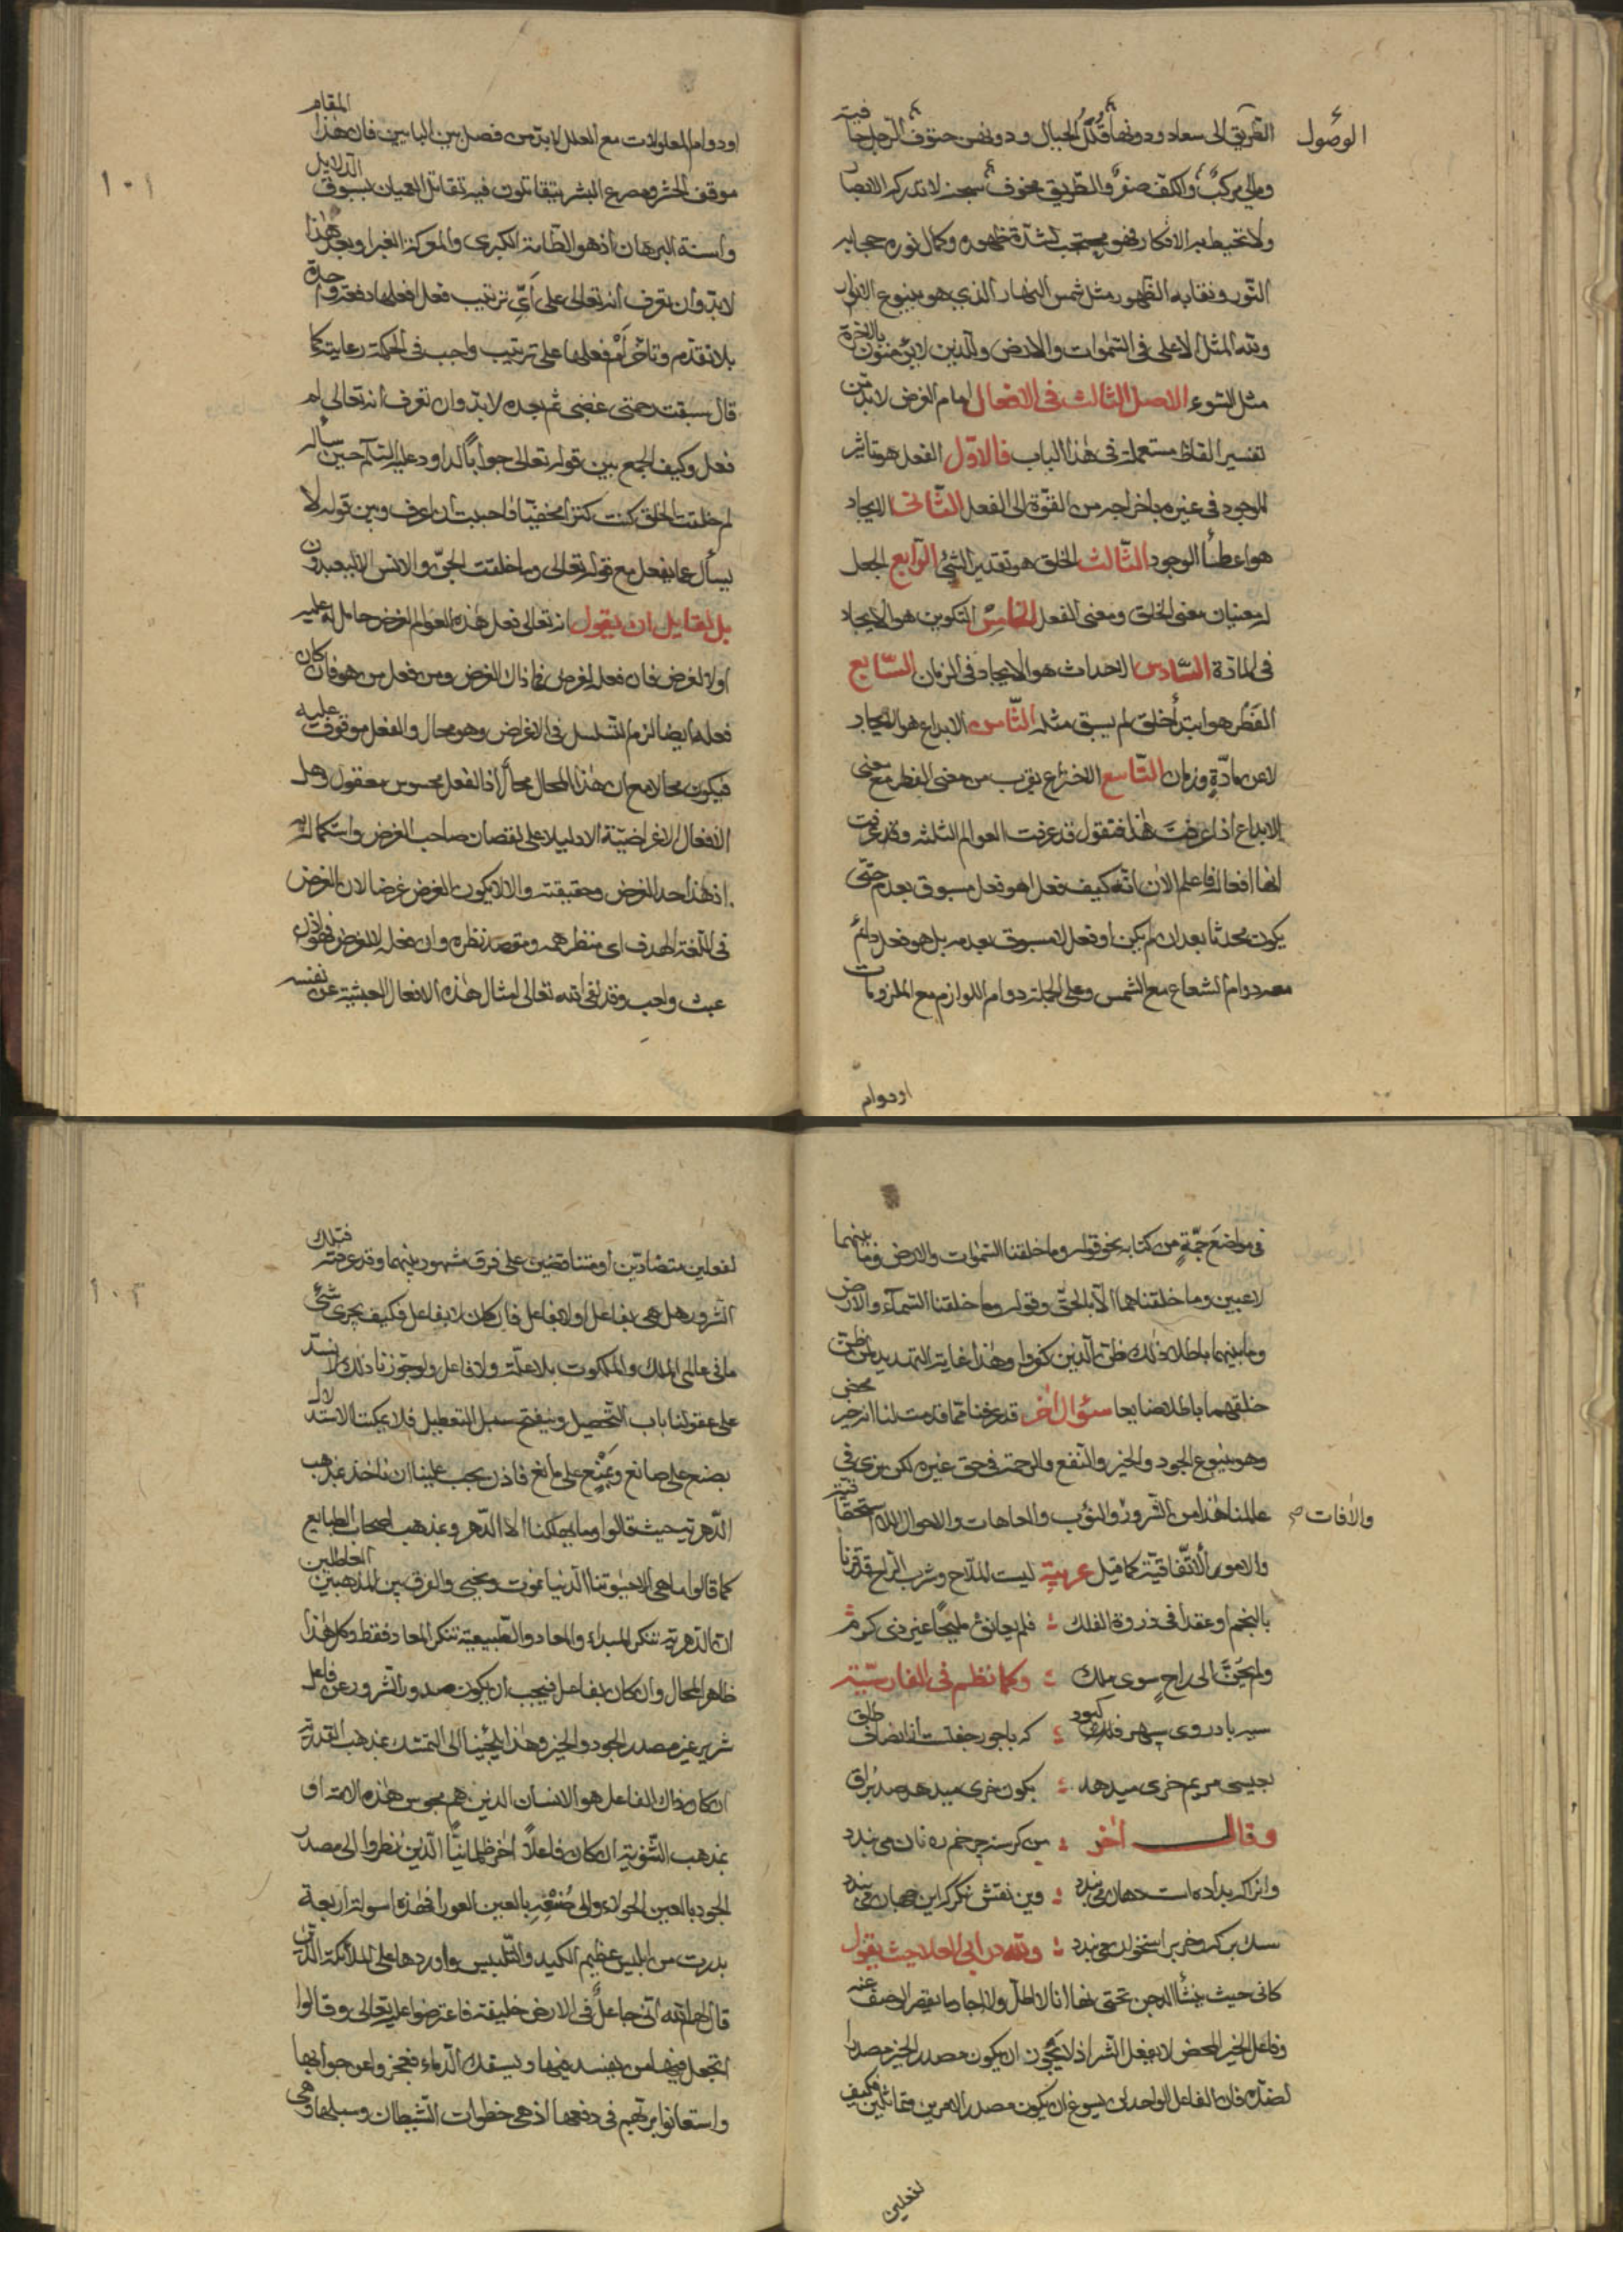 الوصول
الطريق الى سعاد ودونها قلل الجبال ودونهن حتوف الرجل حافية
ومالي مركب والكف صفر والطريق مخوف سبحن لا تدركه الابصار
ولا تحيط به الافكار فهو محتجب لشدة ظهوره وكمال نوره حجابه
النور ونقابه الظهور مثل شمس النهار الذي هو ينبوع الانوار
ولله المثل الاعلى في السموات والارض والذين لا يؤمنون بالاخرة
مثل السوء الاصل الثالث في الافعال امام الغرض لابد من
تفسير الفاظ مستعملة في هذا الباب فالاول الفعل هو تاثير
الموجود في غيره باخراجه من القوة الى الفعل الثاني الايجاد
هو اعطاء الوجود الثالث الخلق هو تقدير الشئ الرابع الجعل
له معنيان معنى الخلق ومعنى الفعل الخامس التكوين هو الايجاد
في المادة السادس الاحداث هو الايجاد في الزمان السابع
الفطر هو ابتداء خلق لم يسبق مثله الثامن الابداع هو الايجاد
لا عن مادة وزمان التاسع الاختراع يقرب من معنى الفطر مع معنى
الابداع اذا عرفت هذا فنقول قد عرفت العوالم الثلثه وقد عرفت
انها افعاله فاعلم الان انه كيف فعل اهو فعل مسبوق بعدم حتى
يكون محدثا بعد ان لم يكن او فعل لا مسبوق بعدم بل هو فعل دائم
معه دوام الشعاع مع الشمس وعلى الجملة دوام اللوازم مع الملزومات
او دوام
١٠١
او دوام المعلولات مع العلل لابد من فصل بين البابين فان هذا المقام
موقف الحشر ومصرع البشر يتقاتلون فيه تقاتل العميان بسيوف الدلايل
واسنة البرهان اذ هو الطامة الكبرى والمعركة الغبرا وبعد هذا
لابد وان نعرف انه تعالى على اي ترتيب فعل افعلها دفعة واحدة
بلا تقدم وتاخر ام فعلها على ترتيب واجب في الحكمة رعايته كما
قال سبقت رحمتي غضبي ثم بعده لابد وان نعرف انه تعالى لم
فعل وكيف الجمع بين قوله تعالى جوابا لداود عليه السلم حين ساله
لم خلقت الخلق كنت كنزا مخفيا فاحببت ان اعرف وبين قوله لا
يسأل عما يفعل مع قوله تعالى وما خلقت الجن والانس الا ليعبدون
بل لقايل ان يقول انه تعالى فعل هذه العوالم لغرض حامل له عليه
او لا لغرض فان فعله لغرض فما ذاك الغرض ومن فعل من هو فان كان
فعله ايضا لزم التسلسل في الاغراض وهو محال والفعل موقوف عليه
فيكون محالا مع ان هذا المحال محال اذ الفعل محسوس معقول وهل
الافعال الاغراضية الا دليلا على نقصان صاحب الغرض واستكماله به
اذ هذا حد الغرض وحقيقته والا لا يكون الغرض غرضا لان الغرض
في اللغة الهدف اي منظر همه ومقصد نظره وان فعله لا لغرض فهو اذن
عبث واجب وقد نفى الله تعالى امثال هذه الافعال العبثية عن نفسه
في مواضع جمة من كتابه نحو قوله وما خلقنا السموات والارض وما بينهما
لاعبين وما خلقناهما الا بالحق وقوله وما خلقنا السماء والارض
وما بينهما باطلا ذلك ظن الذين كفروا وهذا غاية التهديد لمن ظن
خلقهما باطلا ضايعا سؤال اخر قد عرفنا مما قدمت لنا انه خير محض
وهو ينبوع الجود والخير والنفع والرحمة في حق غيره لكن نرى في
عالمنا هذا من الشرور والنوب والعاهات والاحوال اللا استحقاقية
والافات صح
والامور الاتفاقية كما قيل عربية ليت الملاح وشرب الراح قد قرنا
بالنجم او عقدا في ذروة الفلك : فلم يعانق مليحا غير ذي كرم
ولم يحن الى راح سوى ملك : وكما نظم في الفارسية
سير بادروى سپهر كبود : كه باجور جفتست از انصاف طاق
بعيسى مريم خرى ميدهد : بكون خرى ميدهد صد براق
وقال اخر : من كرسنه خم ره نان مى بندد
وانرا كه بداده است دهان مى بندد : وين نقش نكر كه اين جهان مى بندد
سك بركه وخر بر استخوان مى بندد : ولله در ابي العلا حيث يقول
وفاعل الخير المحض لا يفعل الشر اذ لا يجوز ان يكون مصدر الخير مصدرا
لضده فان الفاعل الواحد لن يسوغ ان يكون مصدر الامرين متماثلين فكيف
لفعلين
١٠٢
لفعلين متضادين او متناقضين على فرق مشهود بينهما وقد عرفته فتلك
الشرور هل هي بفاعل او لا بفاعل فان كان لا بفاعل فكيف يجرى شئ
ما في عالمي الملك والملكوت بلا علة ولا فاعل ولو جوزنا ذلك لانسد
على عقولنا باب التحصيل وينفتح سبل التعطيل فلا يمكننا الاستدلال
بصنع على صانع وبمنع على مانع فاذن يجب علينا ان ناخذ بمذهب
الدهرية حيث قالوا وما يهلكنا الا الدهر وبمذهب اصحاب الطبايع
كما قالوا ما هي الا حيوتنا الدنيا نموت ونحيى والفرق بين المذهبين الباطلين
ان الدهرية تنكر المبداء والمعاد والطبيعية تنكر المعاد فقط وكل هذا
ظاهر المحال وان كان بفاعل فيجب ان يكون صدور الشرور عن فاعل
شرير غير مصدر الجود والخير وهذا يلجئنا الى التمسك بمذهب القدرية
ان كان ذاك الفاعل هو الانسان الذين هم مجوس هذه الامة او
بمذهب الثنوية ان كان فاعلا اخر ظلمانيا الذين نظروا الى مصدر
الجود بالعين الحولاء والى صنعه بالعين العورا فهذه اسولة اربعة
بدرت من ابليس عظيم الكيد والتلبيس واوردها على الملائكة الذين
قال لهم الله اني جاعل في الارض خليفة فاعترضوا عليه تعالى وقالوا
اتجعل فيها من يفسد فيها ويسفك الدماء فعجزوا عن جوابها
واستعانوا بربهم في دفعها اذ هي خطوات الشيطان وسبلها وهي